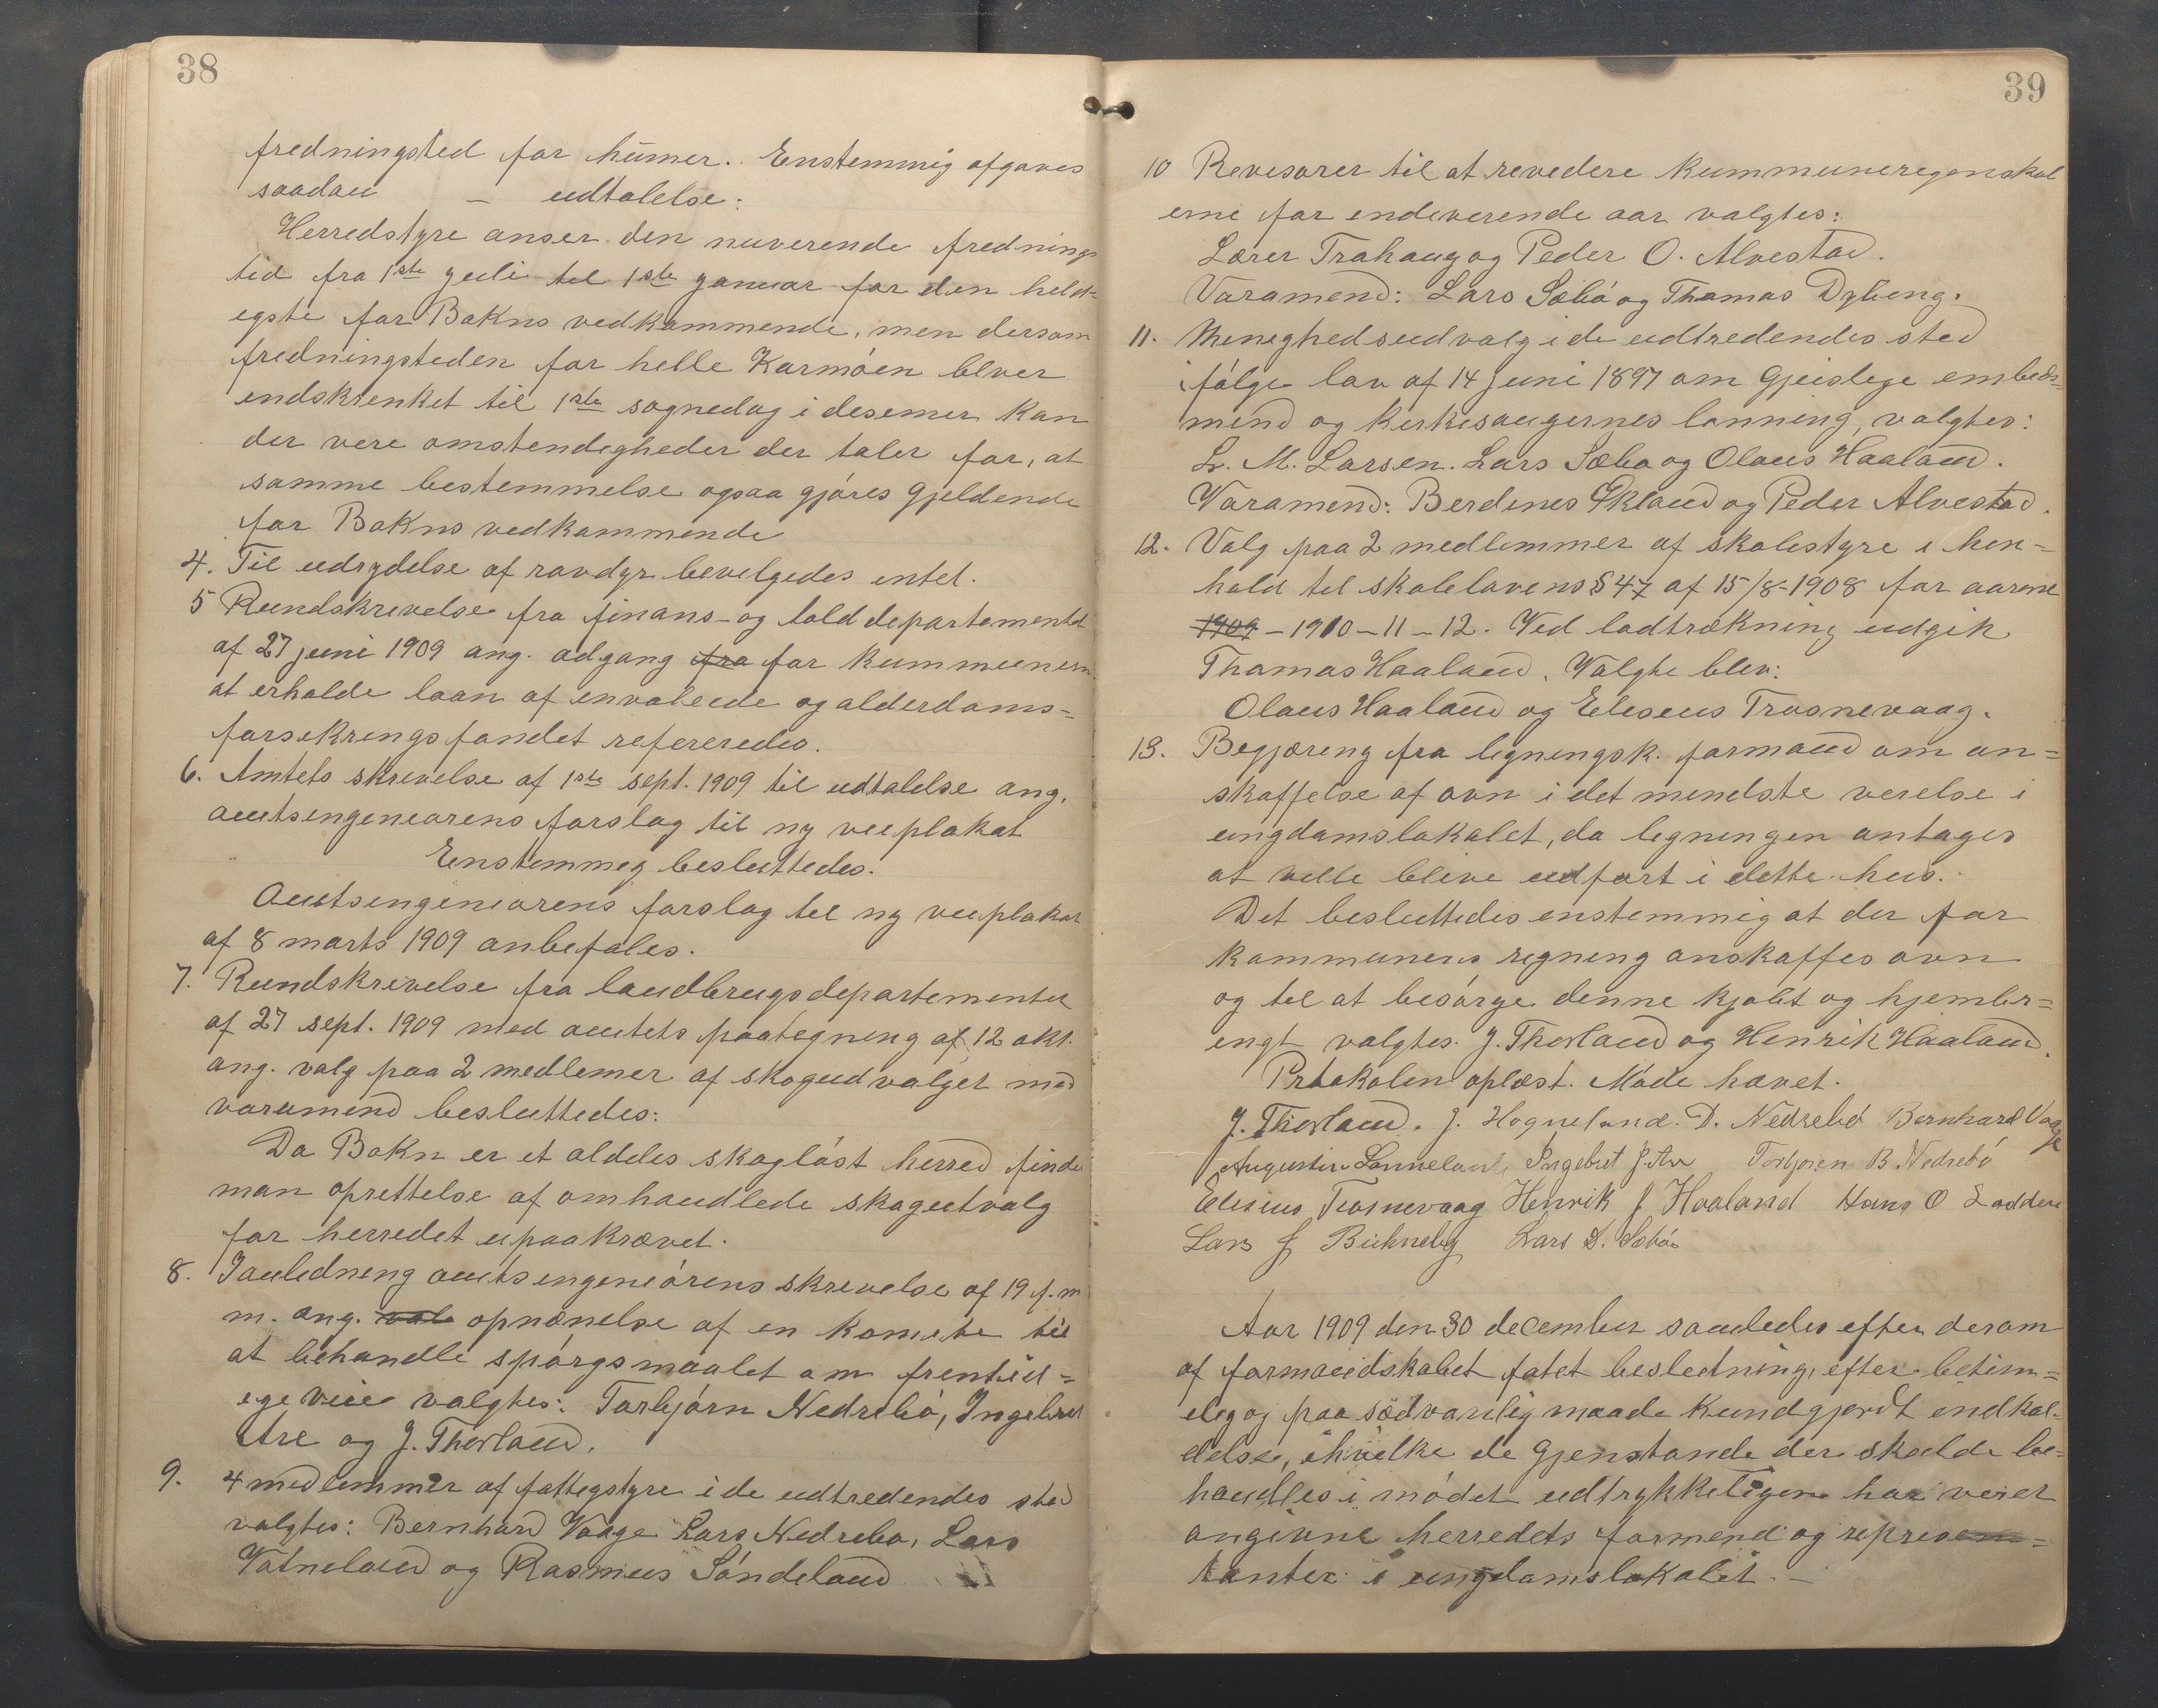 38
fredningsted for hümer. Enstemmig afgaves
saadan – udtalelse:
Herredstyre anser den nuverende frednings
tid fra 1ste juli til 1ste januar for den held-
egste for Bokns vedkammende, men dersom
fredningsteden for helle Karmöen blver
endskrenket til 1ste sognedag i desemer kan
der vere omstendegheder der taler for, at
samme bestemmelse ogsaa gjöres gjeldende
for Bokns vedkommende
4. Til udrydelse af rovdyr bevelgedes entet.
5 Rundskrevelse fra finans- og told departementet
af 27 juni 1909 ang. adgang fra for kummunerne
at erholde laan af envaleede og alderdoms-
forsekrengsfondet refereredes.
6. Amtets skrevelse af 1ste sept. 1909 til udtalelse ang.
amtsengeniorens forslag til ny veeplakat
Enstemmeg besluttedes.
Amtsengeniorens forslag tel ny veeplakat
af 8 marts 1909 anbefales.
7. Rundskrevelse fra landbrugsdepartementet
af 27 sept. 1909 med amtets paategneng af 12 okt.
ang. valg paa 2 medlemer af skogudvalget med
varamend besluttedes:
Da Bokn er et aldeles skoglöst herred finder
man oprettelse af omhandlede skogutvalg
for herredet upaakrævet.
8. I anledneng amtsengeniörens skrevelse af 19 f. m
m. ang. val opnænelse af en komete til
at behandle spörgsmaalet om fremtid-
ege veie valgtes: Torbjörn Nedrebö, Ingebret
Are og J. Thorland.
9. 4 medlemmer af fattegstyre i de udtredendes sted
valgtes: Bernhard Vaage Lars Nedrebo, Lars
Vatneland og Rasmus Söndeland
39
10 Revesorer til at revedere kummuneregenskab
erne for endeverende aar valgtes:
Lærer Trahaug og Peder O. Alvestad.
Varamend: Lars Sæbö og Thomas Dybeng.
11. Meneghedsudvalg i de udtredendes sted
i fölge lov af 14 juni 1897 om Gjeislege embeds-
mend og kerkesangernes lonneng, valgtes:
L. M. Larsen. Lars Sæbo og Olaus Haaland.
Varamend: Berdenes Økland og Peder Alvestad.
12. Valg paa 2 medlemmer af skolestyre i hen-
hold tel skolelovens § 47 af 15/8-1908 for aarene
1909 – 1910 – 11 – 12. Ved lodtrækning udgik
Thomas Haaland. Valgte blev:
Olaus Haaland og Eleseus Trosnevaag.
13. Begjæreng fra legningsk. formand om an-
skaffelse af ovn i det mendste verelse i
ungdomslokalet, da legningen antages
at velle bleve udfört i dette hus.
Det besluttedes enstemmig at der for
kommunens regning anskaffes ovn
og tel at besörge denne kjöbt og hjembr-
engt valgtes. J. Thorland og Henrik Haaland.
Protokolen oplæst. Möde hævet.
J. Thorland. J. Hogneland. D. Nedrebö Bernhard Vaage
Augustin Sanneland Ingebret J. Are Torbjørn B. Nedrebö
Elesius Trosnevaag Henrik J Haaland Hans O Loddene
Lars J Lars D. Sæbö
Aar 1909 den 30 december samledes efter derom
af formandskabet fatet besledning, efter betim-
eleg og paa sædvanlig maade kundgjordt indkal-
delse, ihvilke de gjenstande der skulde be-
handles i mödet udtrykkeligen har veret
angivne herredets formend og represen-
tanter i ungdomslokalet. –